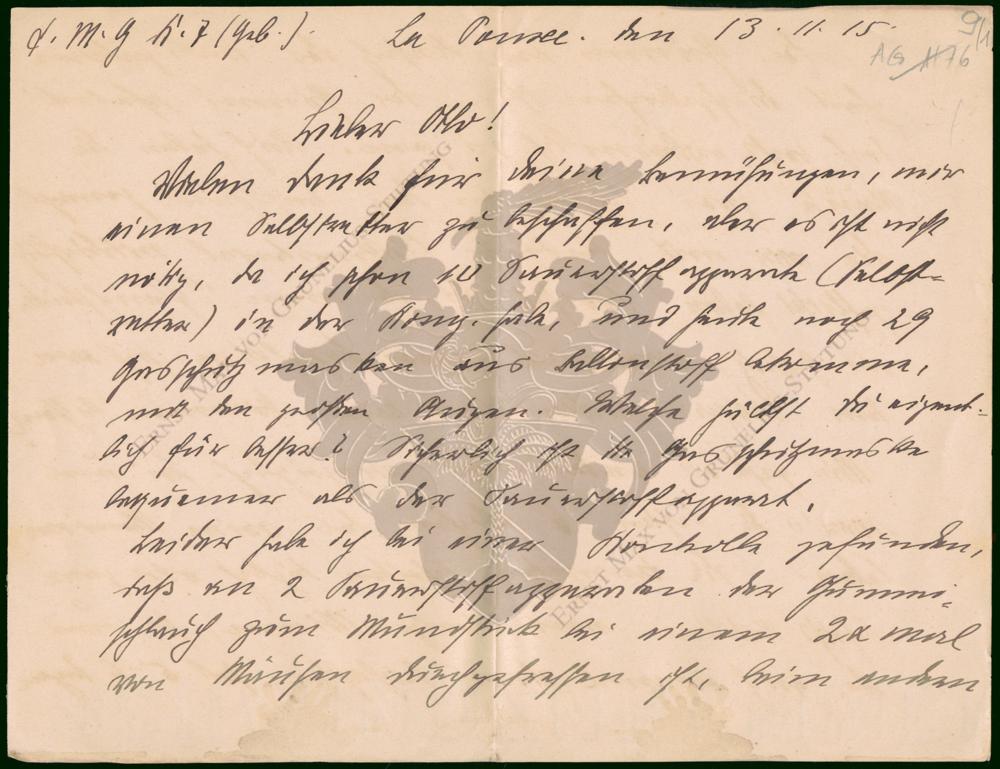 F. M. G. K. 7 (Geb.). La Pousee. den 13.11.15.
9/1
AG 1176
Lieber Otto!
Vielen Dank für deine Bemühungen, mir
einen Selbstretter zu beschaffen, aber es ist nicht
nötig, da ich schon 10 Sauerstoffapparate (Selbst-
retter) in der Komp. habe, und heute noch 29
Gasschutzmasken aus Ballonstoff bekomme,
mit den großen Augen. Welche hältst du eigent-
lich für besser? Sicherlich ist die Gasschutzmaske
bequemer als der Sauerstoffapparat.
Leider habe ich bei einer Kontrolle gefunden,
daß an 2 Sauerstoffapparaten der Gummi-
schlauch zum Mundstück bei einem 2 x mal
von Mäusen durchgefressen ist, beim andern
ERNST MAX VON GRUNELIUS-STIFTUNG
ERNST MAX VON GRUNELIUS-STIFTUNG